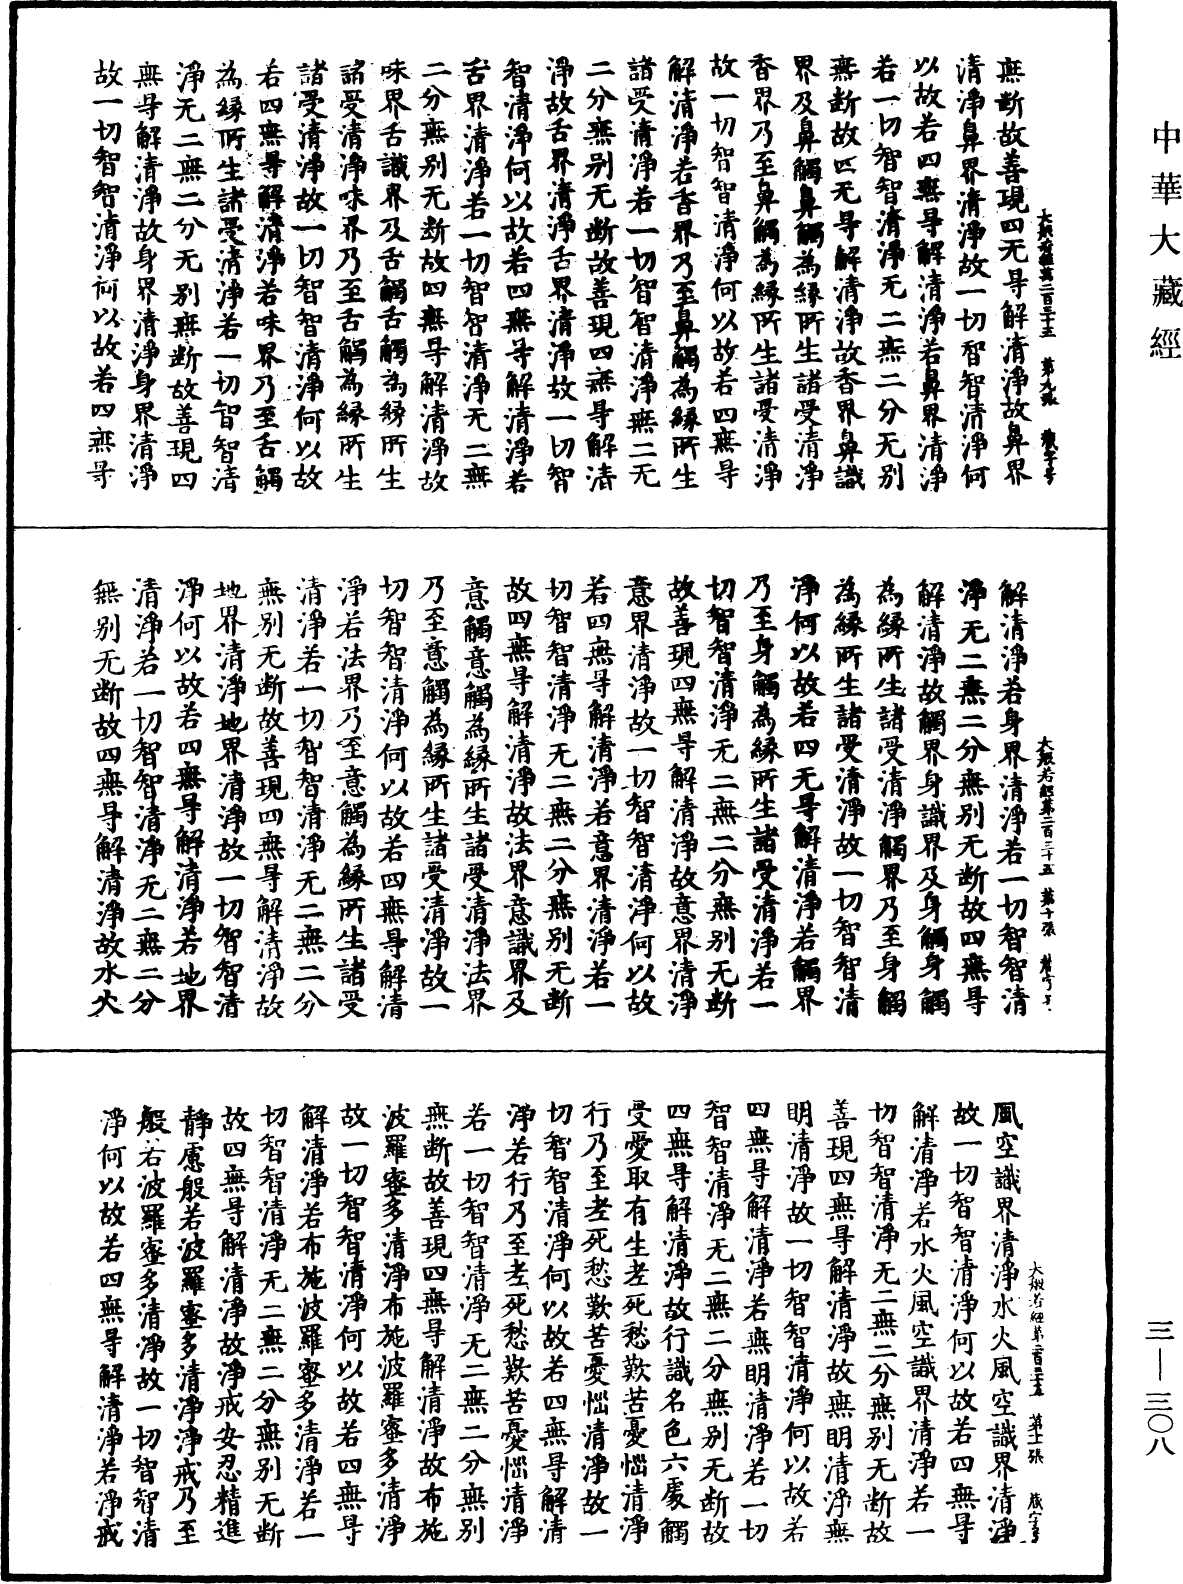 中華大藏經
大般若經第二百三十五 第九張
無断故善現四无㝵解清淨故鼻界
清淨鼻界清淨故一切智智清淨何
以故若四無㝵解清淨若鼻界清淨
若一切智智清淨无二無二分无別
無断故四无㝵解清淨故香界鼻識
界及鼻觸鼻觸為緣所生諸受清淨
香界乃至鼻觸為緣所生諸受清淨
故一切智智清淨何以故若四無㝵
解清淨若香界乃至鼻觸為緣所生
諸受清淨若一切智智清淨無二无
二分無別无断故善現四無㝵解清
淨故舌界清淨舌界清淨故一切智
智清淨何以故若四無㝵解清淨若
舌界清淨若一切智智清淨无二無
二分無別无断故四無㝵解清淨故
味界舌識界及舌觸舌觸為緣所生
諸受清淨味界乃至舌觸為緣所生
諸受清淨故一切智智清淨何以故
若四無㝵解清淨若味界乃至舌觸
為緣所生諸受清淨若一切智智清
淨无二無二分无別無断故善現四
無㝵解清淨故身界清淨身界清淨
故一切智智清淨何以故若四無㝵
大般若經第二百三十五 第十張
解清淨若身界清淨若一切智智清
淨无二無二分無別无断故四無㝵
解清淨故觸界身識界及身觸身觸
為緣所生諸受清淨觸界乃至身觸
為緣所生諸受清淨故一切智智清
淨何以故若四无㝵解清淨若觸界
乃至身觸為緣所生諸受清淨若一
切智智清淨无二無二分無別无断
故善現四無㝵解清淨故意界清淨
意界清淨故一切智智清淨何以故
若四無㝵解清淨若意界清淨若一
切智智清淨无二無二分無別无断
故四無㝵解清淨故法界意識界及
意觸意觸為緣所生諸受清淨法界
乃至意觸為緣所生諸受清淨故一
切智智清淨何以故若四無㝵解清
淨若法界乃至意觸為緣所生諸受
清淨若一切智智清淨无二無二分
無別无断故善現四無㝵解清淨故
地界清淨地界清淨故一切智智清
淨何以故若四無㝵解清淨若地界
清淨若一切智智清淨无二無二分
無別无断故四無㝵解清淨故水火
大般若經第二百三十五 第十一張
風空識界清淨水火風空識界清淨
故一切智智清淨何以故若四無㝵
解清淨若水火風空識界清淨若一
切智智清淨无二無二分無別无断故
善現四無㝵解清淨故無明清淨無
明清淨故一切智智清淨何以故若
四無㝵解清淨若無明清淨若一切
智智清淨无二無二分無別无断故
四無㝵解清淨故行識名色六處觸
受愛取有生老死愁歎苦憂惱清淨
行乃至老死愁歎苦憂惱清淨故一
切智智清淨何以故若四無㝵解清
淨若行乃至老死愁歎苦憂惱清淨
若一切智智清淨无二無二分無別
無断故善現四無㝵解清淨故布施
波羅蜜多清淨布施波羅蜜多清淨
故一切智智清淨何以故若四無㝵
解清淨若布施波羅蜜多清淨若一
切智智清淨无二無二分無別无断
故四無㝵解清淨故淨戒安忍精進
靜慮般若波羅蜜多清淨淨戒乃至
般若波羅蜜多清淨故一切智智清
淨何以故若四無㝵解清淨若淨戒
三—三〇八